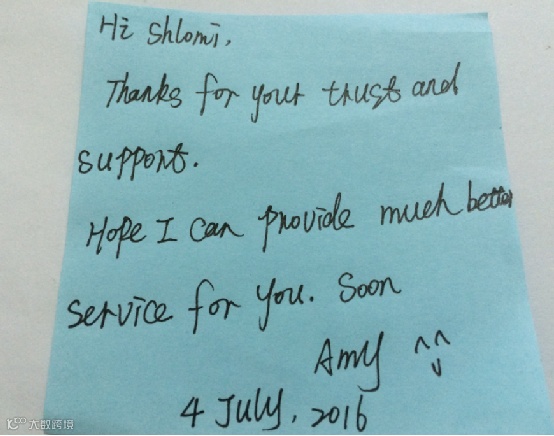 Hi Shlomi,
Thanks for your trust and
support.
Hope I can provide much better
service for you. Soon
Amy ^^
4 July, 2016
大数跨境